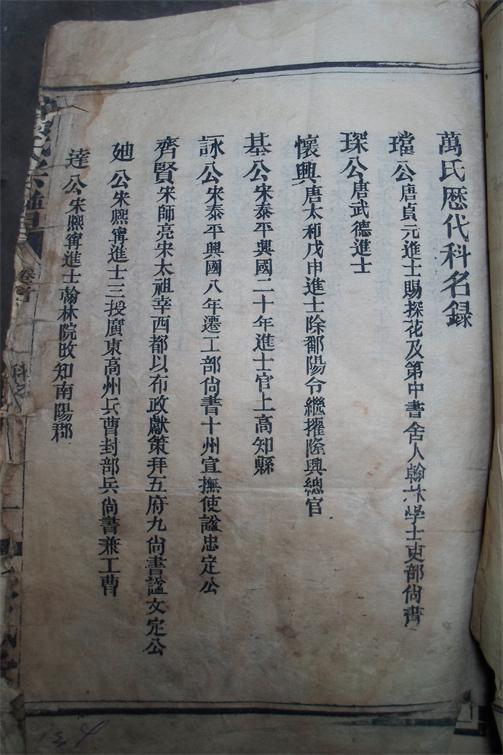 萬氏歷代科名錄
璫公唐貞元進士賜探花及第中書舍人翰林學士吏部尙書
琛公唐武德進士
懷興唐太和戊申進士除鄱陽令繼擢隆興總官
基公宋泰平興國二十年進士官上高知縣
詠公宋泰平興國八年遷工部尙書十州宣撫使謚忠定公
齊賢宋師亮宋太祖幸西都以布政獻策拜五府九尙書謚文定公
公宋熈寗進士三授廣東高州兵曹封部兵尙書兼工曹
達公宋熈寗進士翰林院敗知南陽郡